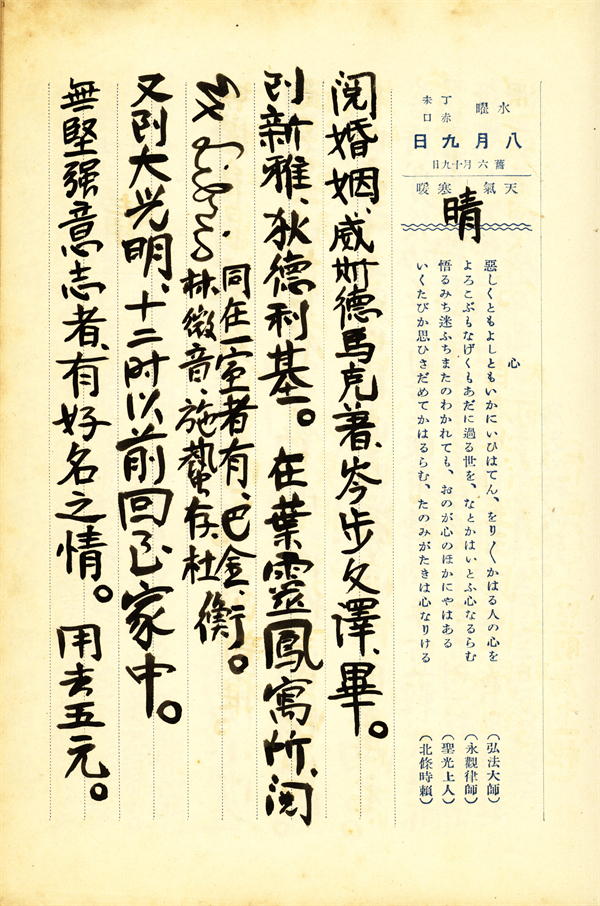 水曜 丁未 赤口
八月九日
舊六月十九日
天氣 寒暖
晴
心
惡しくともよしともいかにいひはてん、をり〳〵かはる人の心を (弘法大師)
よろこぶもなげくもあだに過る世を、などかはいとふ心なるらむ (永觀律師)
悟るみち迷ふちまたのわかれても、おのが心のほかにやはある (聖光上人)
いくたびか思ひさだめてかはるらむ、たのみがたきは心なりける (北條時賴)
閱婚姻、威斯德馬克著、岑步文譯、畢。
到新雅、狄德利基。在葉靈鳳寓所、閱
同在一室者有、巴金、
林微音、施蟄存、杜衡。
又到大光明、十二时以前回到家中。
無堅强意志者、有好名之情。用去五元。